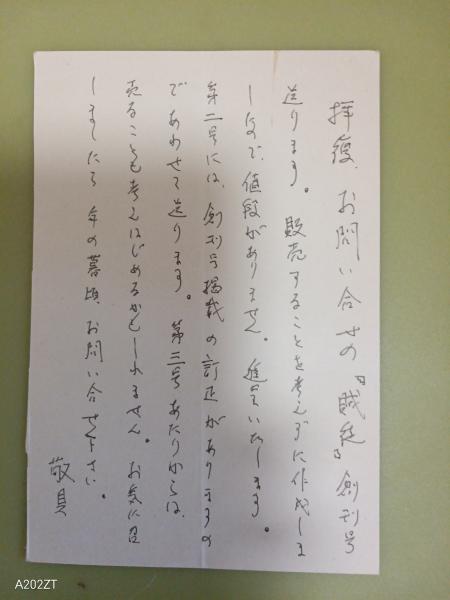 拝復、お問い合せの『賤徒』創刊号
送ります。販売することを考えずに作成しま
したので、値段がありません。進呈いたします。
第二号には、創刊号掲載の訂正がありますの
であわせて送ります。第三号あたりからは、
売ることも考えはじめるかもしれません。お気に召
しましたら年の暮頃お問い合せ下さい。
敬具
A202ZT